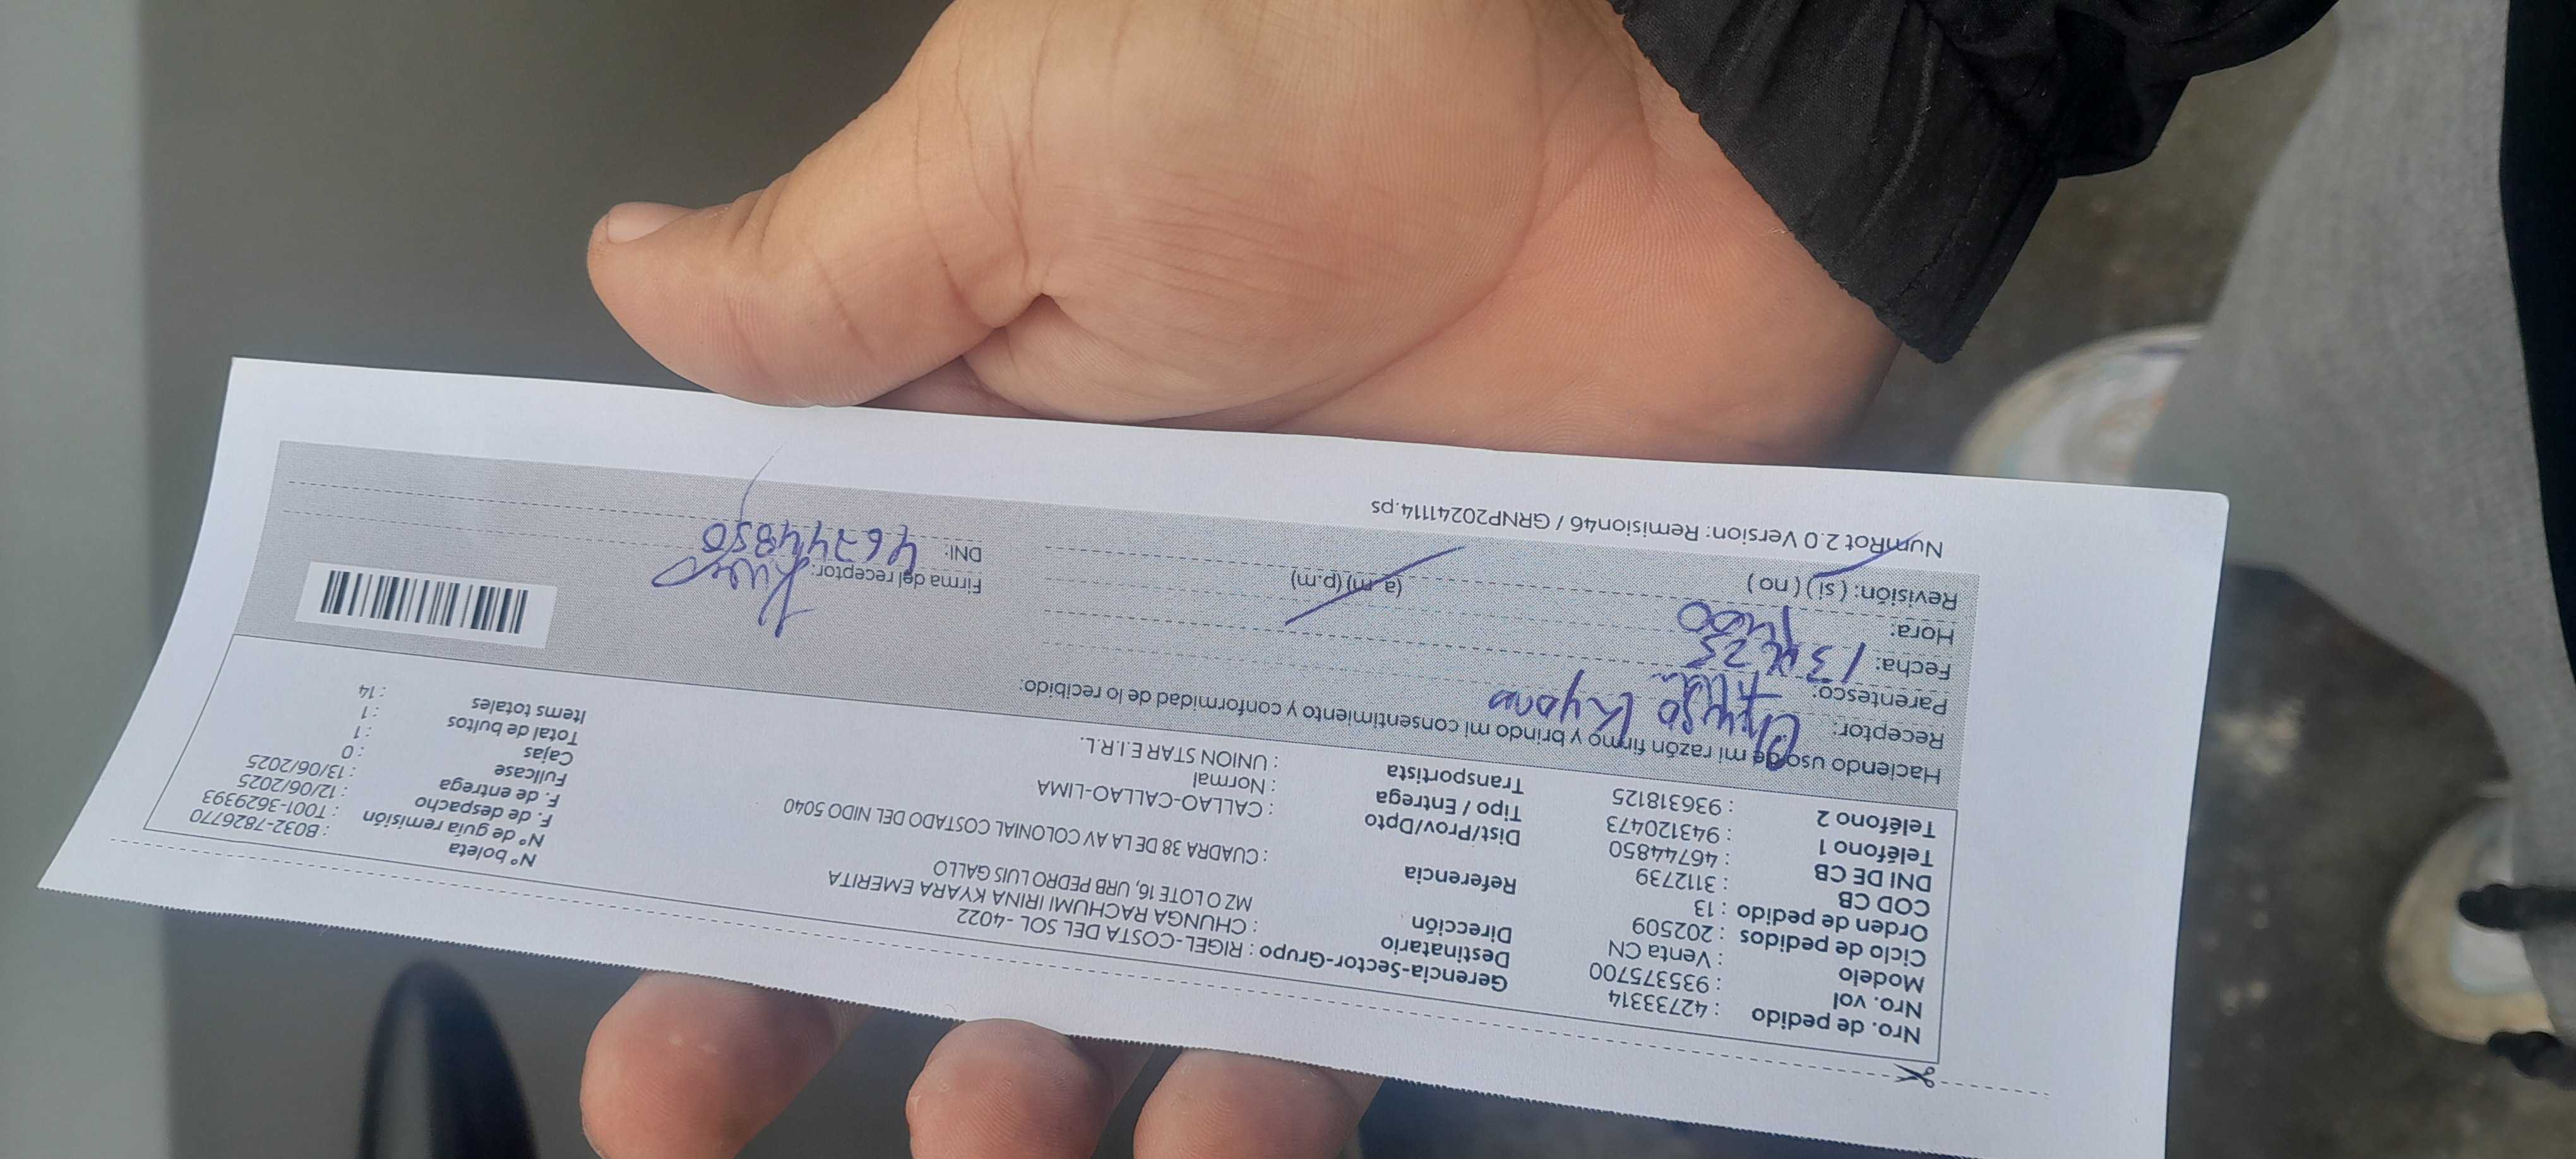 Nro. de pedido : 42733314
Nro. vol : 935375700
Modelo : Venta CN
Ciclo de pedidos : 202509
Orden de pedido : 13
COD CB : 3112739
DNI DE CB : 46744850
Teléfono 1 : 943120473
Teléfono 2 : 936318125
Gerencia-Sector-Grupo : RIGEL-COSTA DEL SOL -4022
Destinatario : CHUNGA RACHUMI IRINA KYARA EMERITA
Dirección MZ O LOTE 16, URB PEDRO LUIS GALLO
Referencia : CUADRA 38 DE LA AV COLONIAL COSTADO DEL NIDO 5040
Dist/Prov/Dpto : CALLAO-CALLAO-LIMA
Tipo / Entrega : Normal
Transportista : UNION STAR E.I.R.L.
N° boleta : B032-7826770
N° de guía remisión : T001-3629393
F. de despacho : 12/06/2025
F. de entrega : 13/06/2025
Fullcase : 0
Cajas : 1
Total de bultos : 1
Items totales : 14
Haciendo uso de mi razón firmo y brindo mi consentimiento y conformidad de lo recibido:
Receptor:
Parentesco:
Fecha: 13
Hora:
(a.m) (p.m)
Revisión: ( si ) ( no )
Firma del receptor:
DNI: 46744850
NumRot 2.0 Version: Remision46 / GRNP20241114.ps